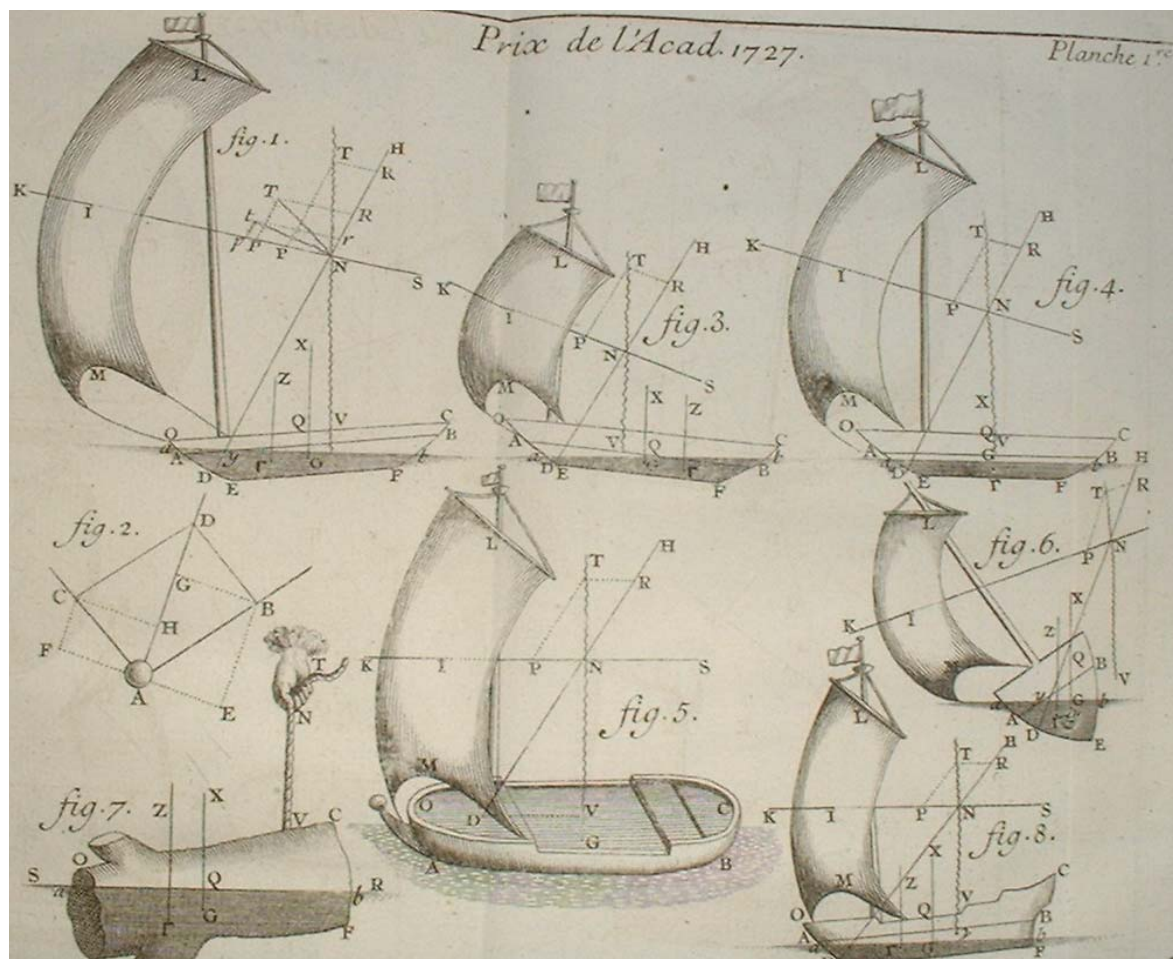 Prix de l'Acad. 1727.
Planche 1.re
fig. 1.
L
T
H
R
K
I
T
R
t
p
P
P
r
N
S
M
X
Z
Q
V
C
B
O
a
A
y
Γ
G
b
D
E
F
fig. 3.
L
T
H
R
K
I
P
N
S
M
X
Z
O
A
a
V
Q
C
D
E
Γ
B
b
F
fig. 4.
L
H
T
R
K
I
P
N
S
M
X
O
Q
V
C
A
G
B
b
D
E
Γ
F
fig. 2.
D
C
G
B
H
F
A
E
fig. 5.
L
T
H
R
K
I
P
N
S
M
O
D
V
C
G
A
B
fig. 6.
L
H
T
R
N
P
K
I
X
Z
Q
B
V
a
A
y
G
b
D
E
fig. 7.
T
N
Z
X
V
C
O
S
a
Q
b
R
Γ
G
F
fig. 8.
L
T
H
R
K
I
P
N
S
X
M
Z
C
O
Q
V
B
A
a
Γ
G
y
b
F